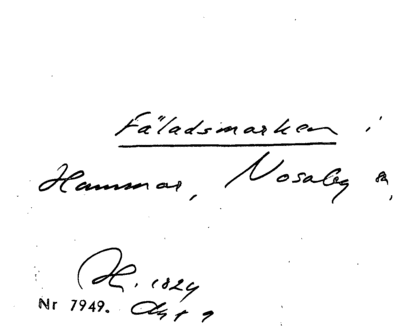 Fäladsmarken i
Hammar, Nosaby sn,
H. 1829
Nr 7949.